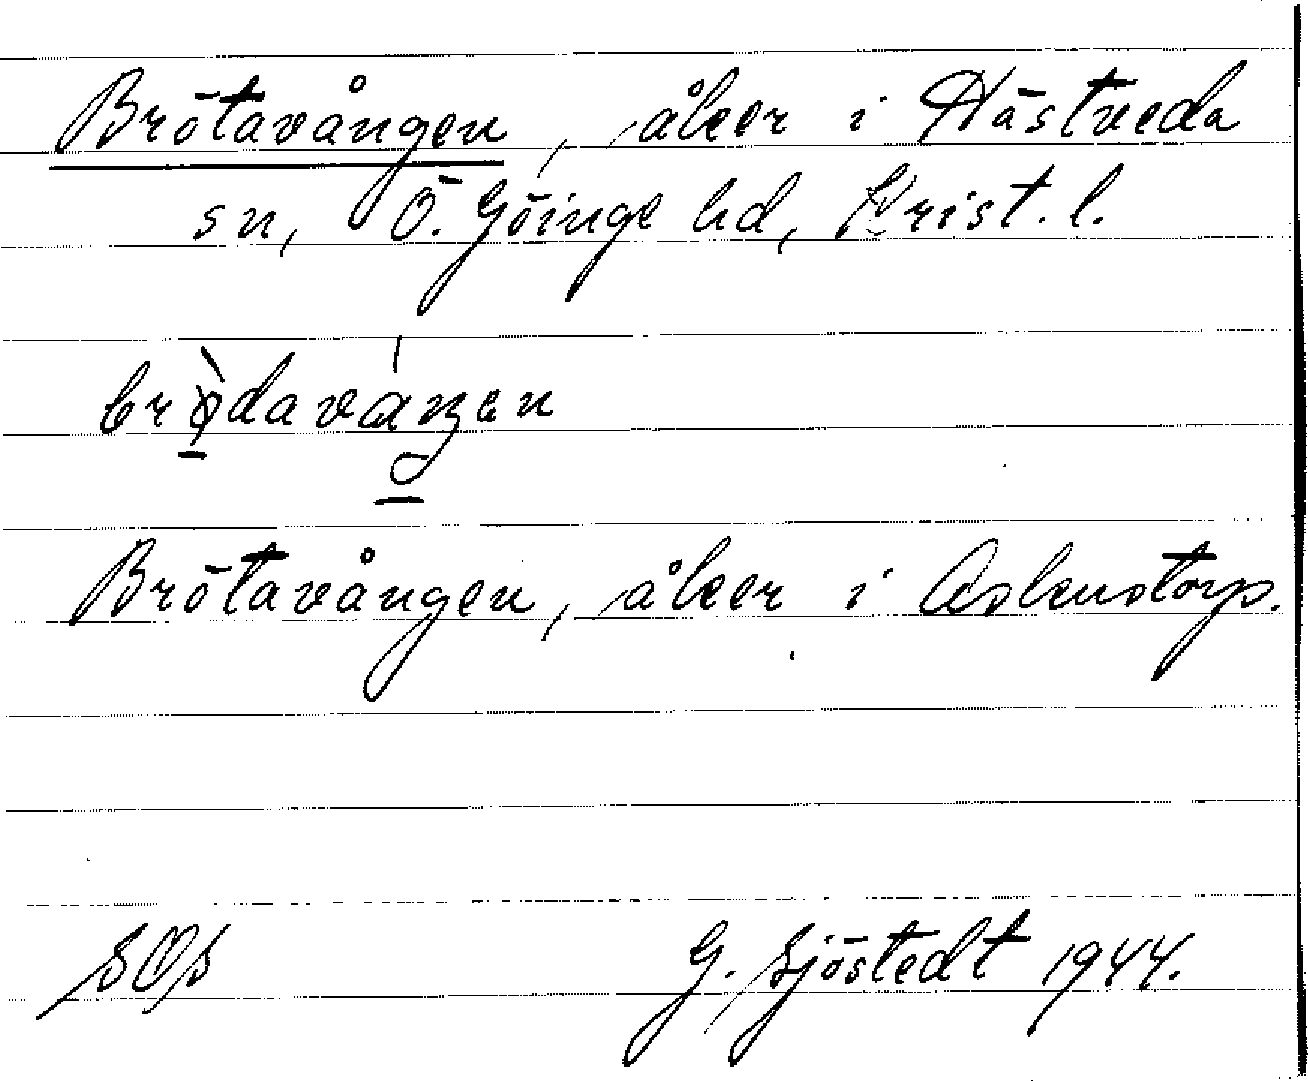 Brötavången, åker i Hästveda
sn, Ö. Göinge hd, Krist. l.
brødavaŋen
Brötavången, åker i Askenstorp.
G. Sjöstedt 1944.